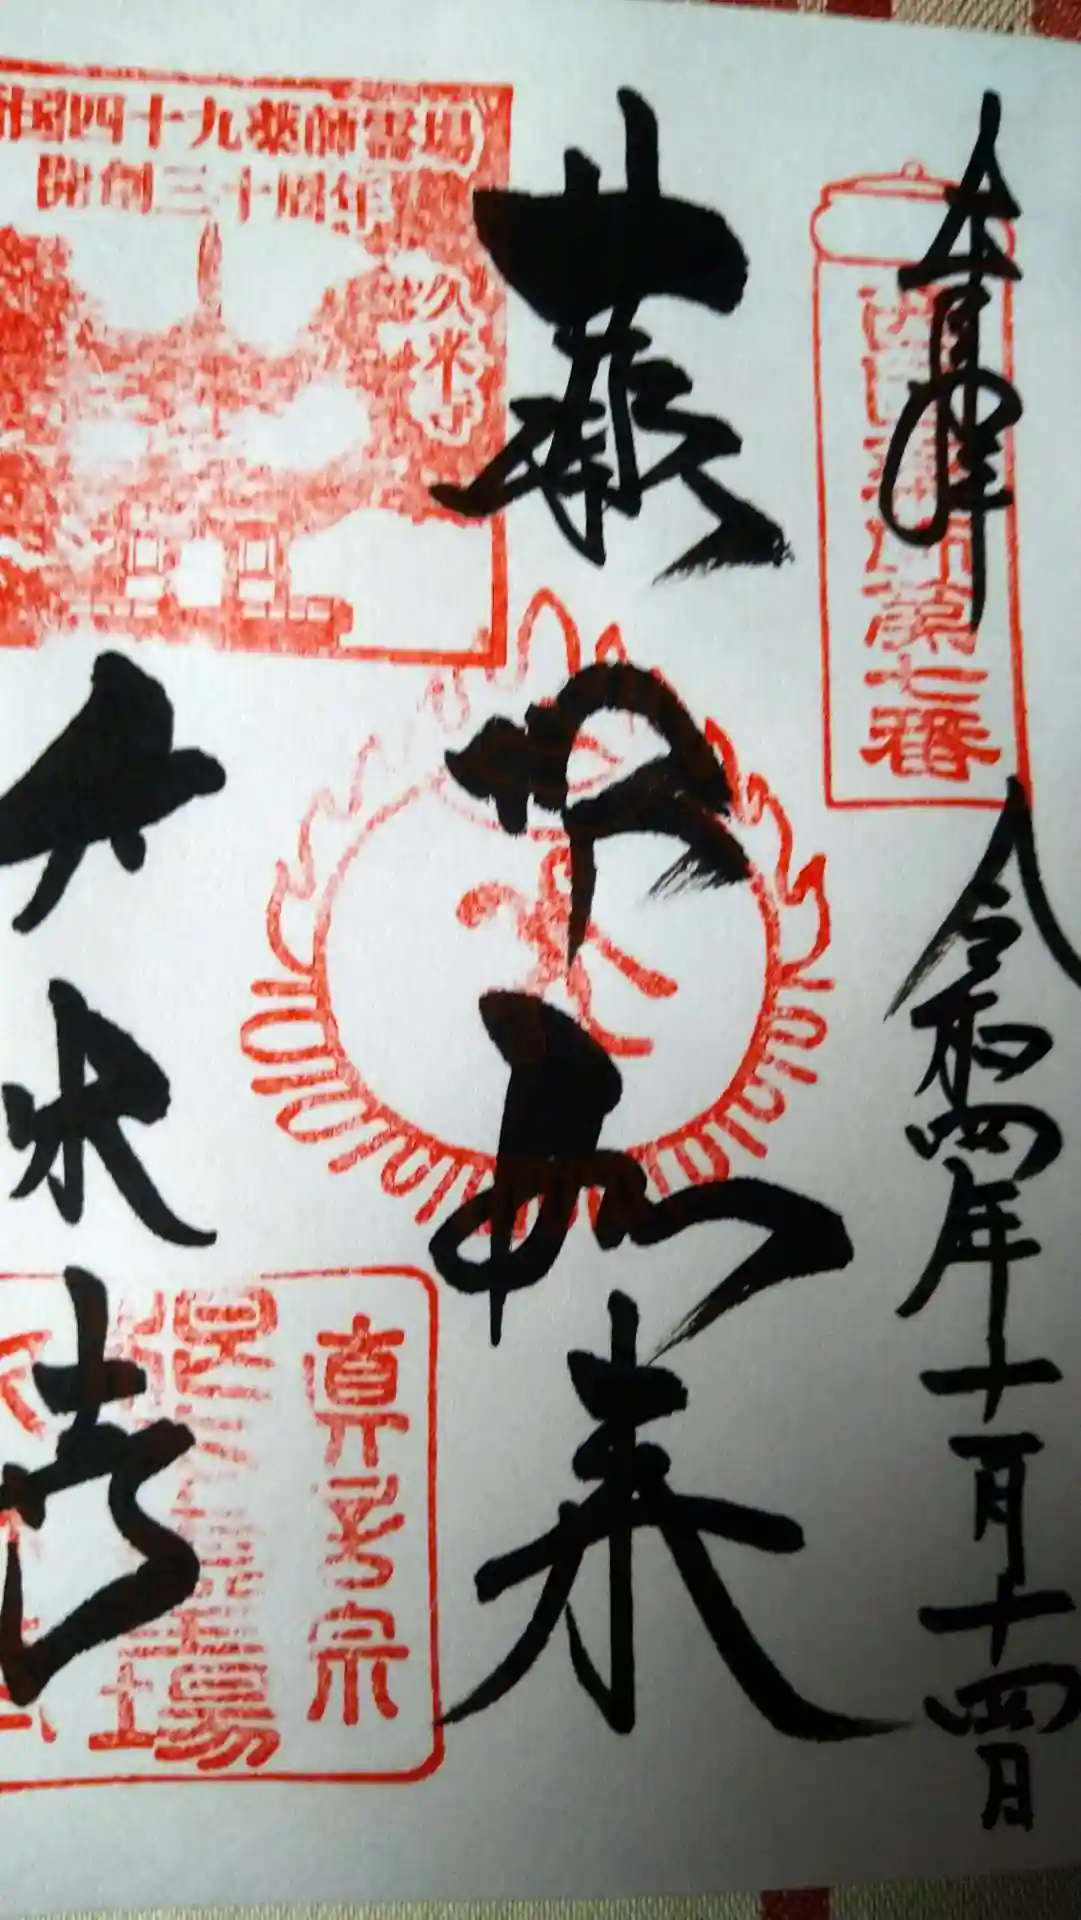 奉拝
令和四年十一月十四日
西国薬師第七番
薬師如来
西国四十九薬師霊場
開創三十周年
久米寺
久米寺
真言宗